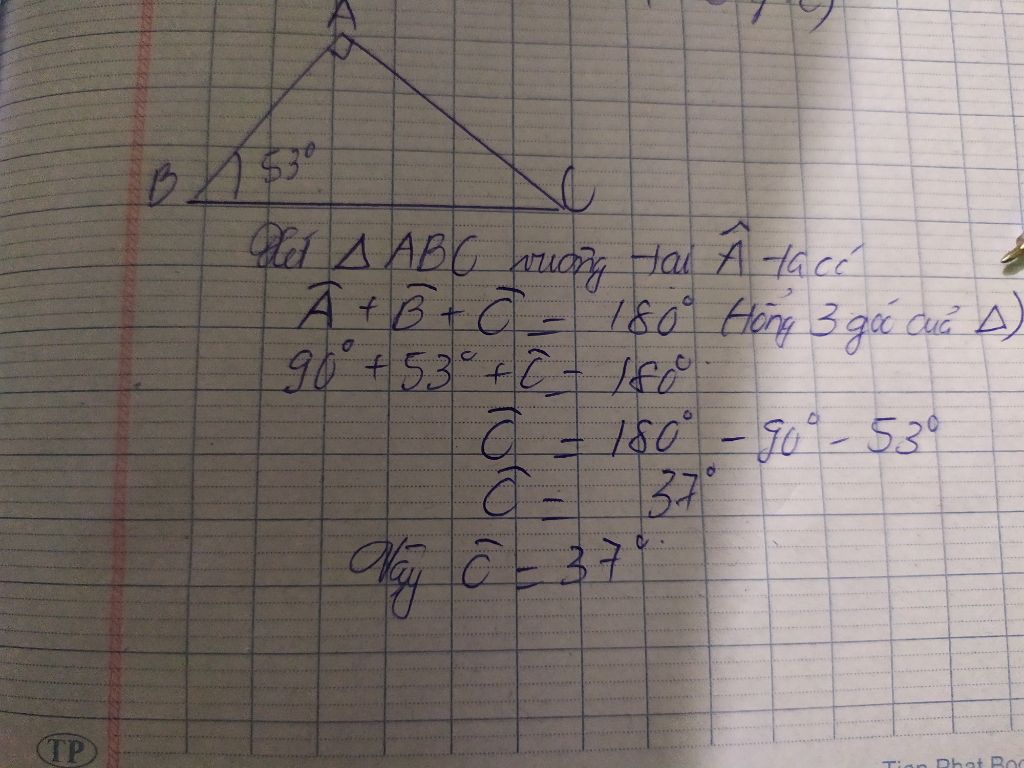 A
B
53°
C
Xét Δ ABC vuông tại Â ta có
Â + B̂ + Ĉ = 180° (tổng 3 góc của Δ)
90° + 53° + Ĉ = 180°
Ĉ = 180° - 90° - 53°
Ĉ = 37°
Vậy Ĉ = 37°
TP
Tien Phat